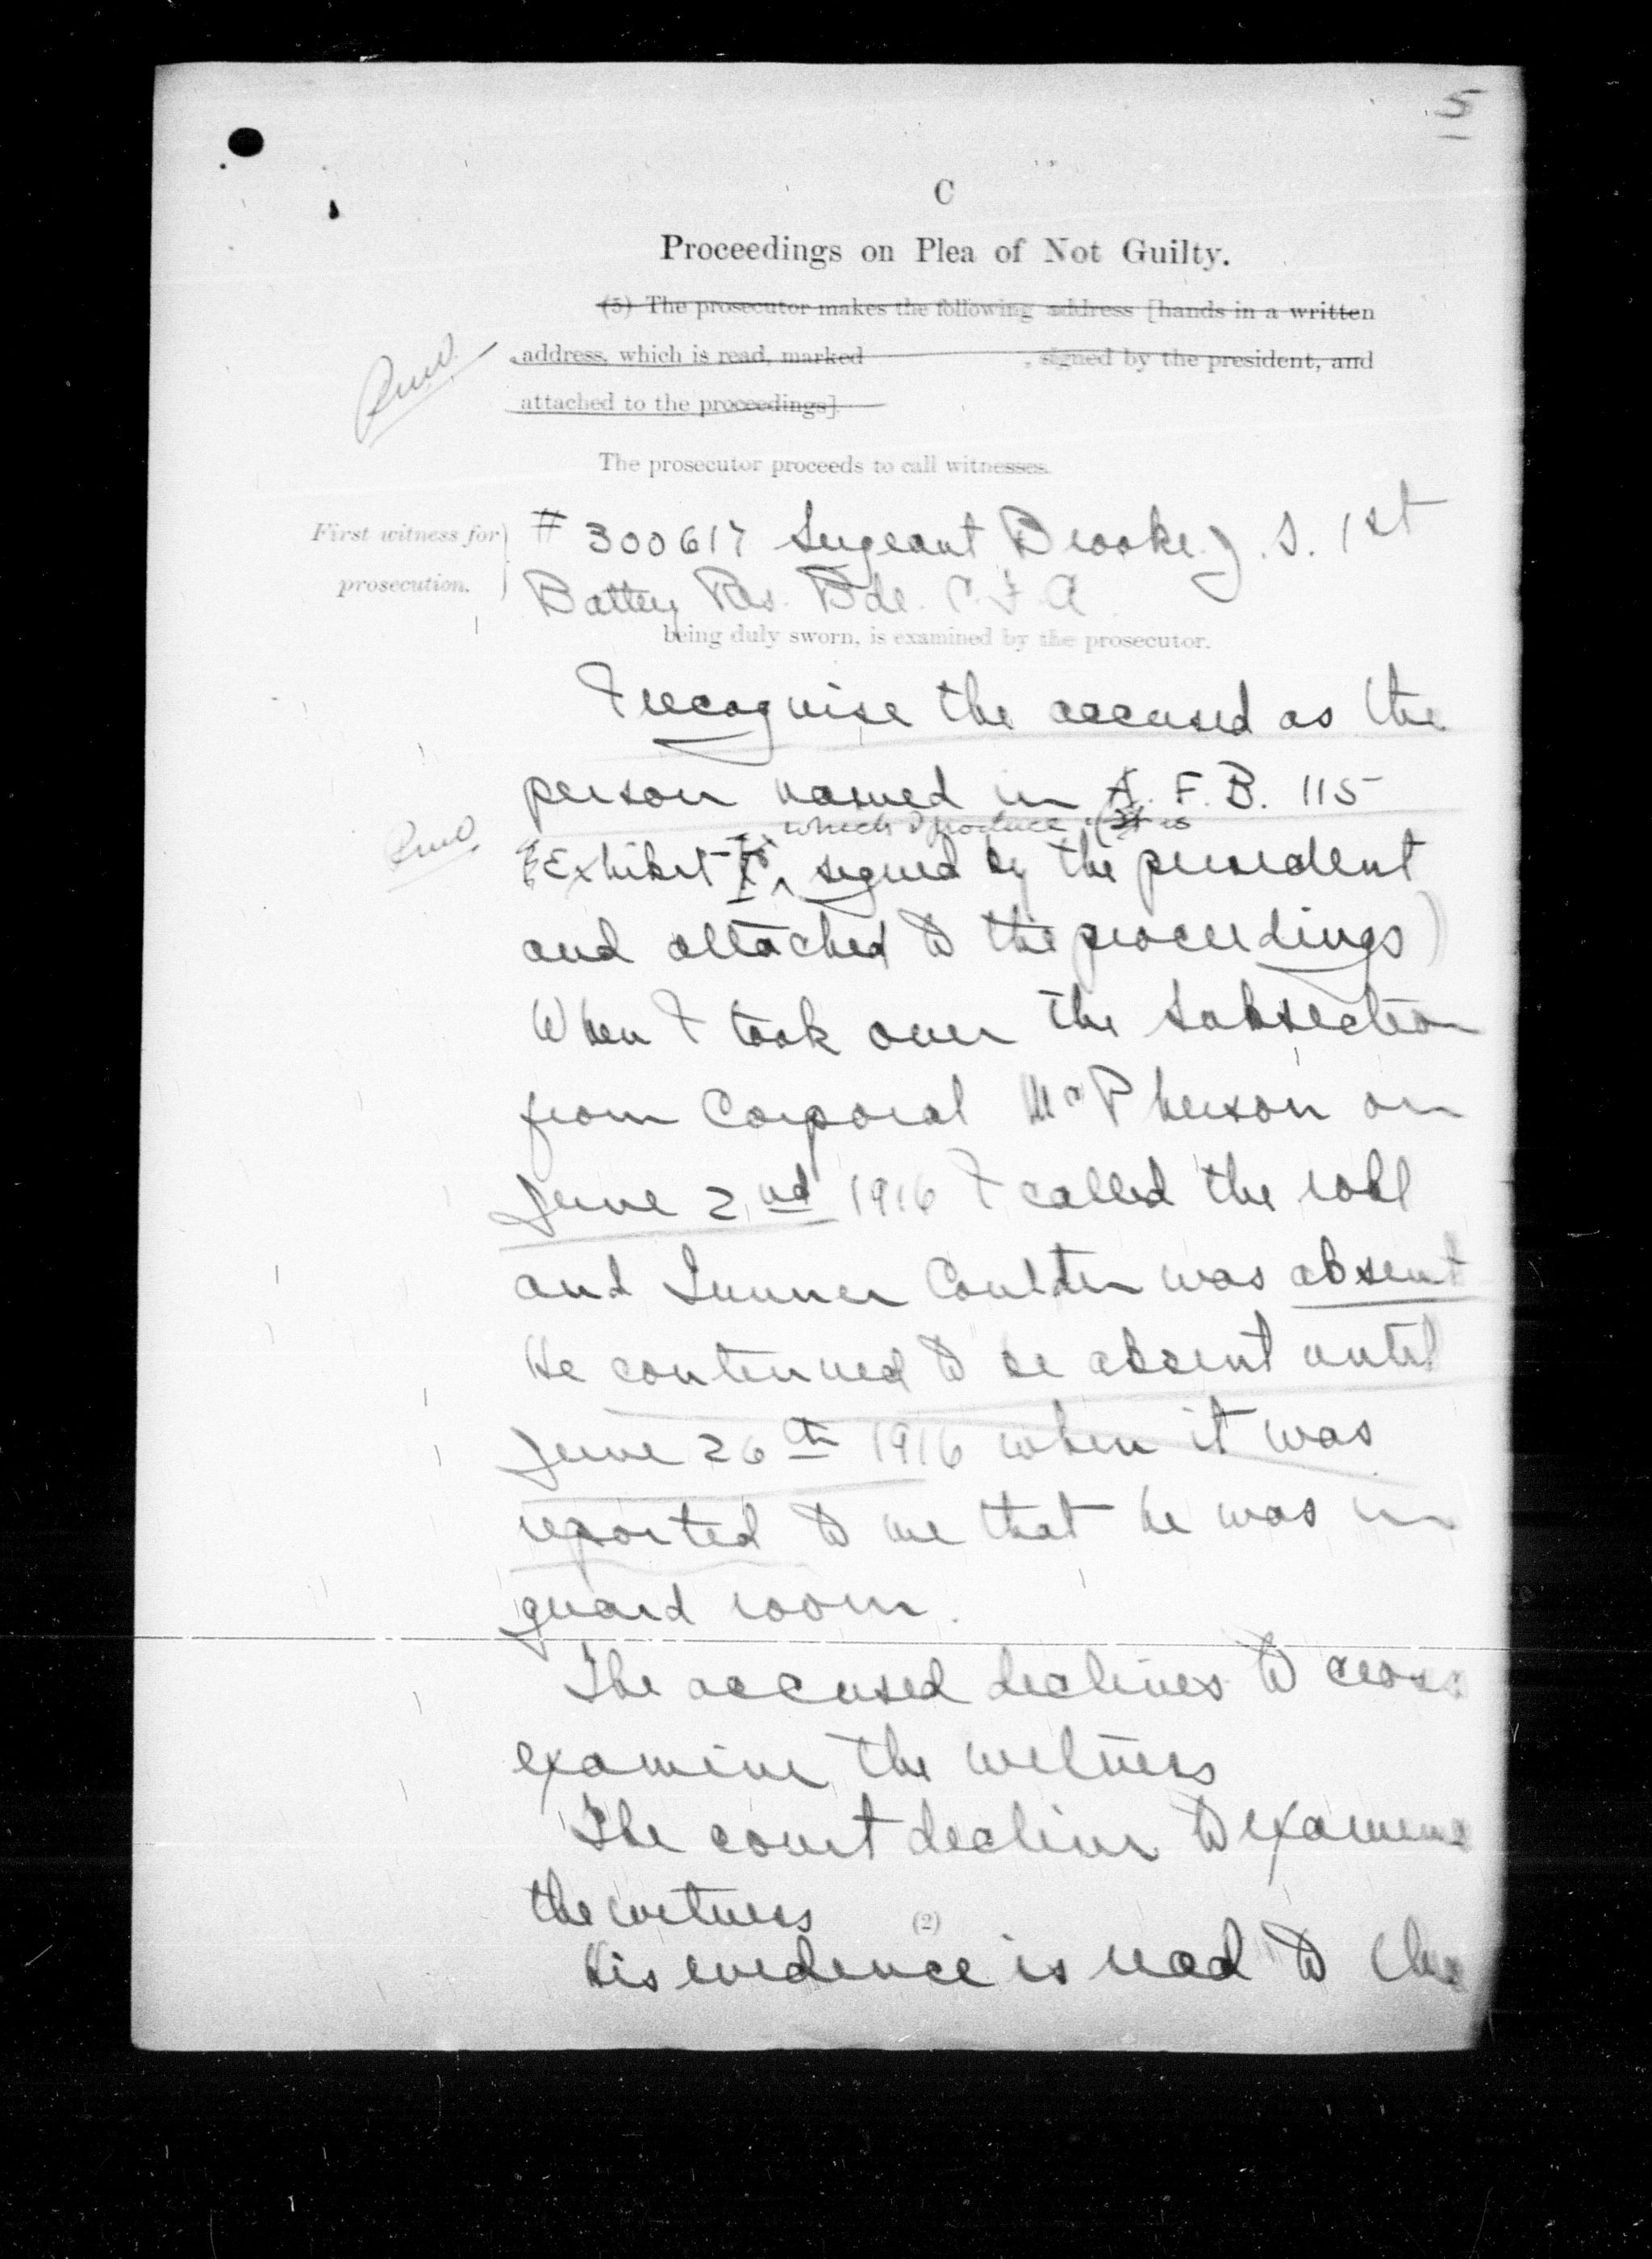 5
C
Proceedings on Plea of Not Guilty.
(5) The prosecutor makes the following address [hands in a written
address, which is read, marked , signed by the president, and
attached to the proceedings].
The prosecutor proceeds to call witnesses.
First witness for
prosecution.
# 300617 Sergeant Brooke J. S. 1st
Battery Res. Bde. C. F. A.
being duly sworn, is examined by the prosecutor.
I recognise the accused as the
person named in A. F. B. 115
which I produce (It is
Exhibit signed by the president
and attached to the proceedings)
When I took over the subsection
from Corporal McPherson on
June 2nd 1916 I called the roll
and Gunner Coulter was absent
He continued to be absent until
June 26th 1916 when it was
reported to me that he was in
guard room.
The accused declines to cross
examine the witness
The court decline to examine
the witness
(2)
His evidence is read to the